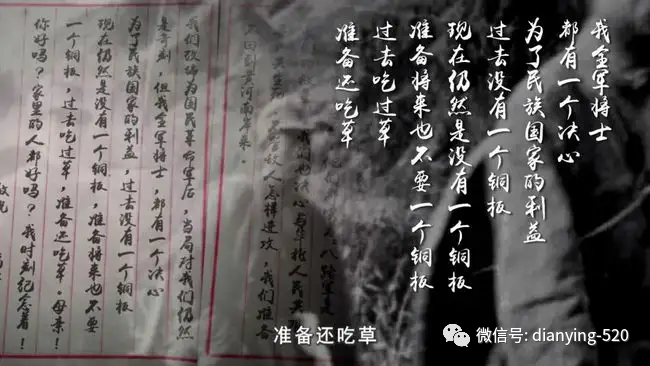 我全军将士
都有一个决心
为了民族国家的利益
过去没有一个铜板
现在仍然是没有一个铜板
准备将来也不要一个铜板
过去吃过草
准备还吃草
八路军是
我们也决心与华北人民共
敌人怎样进攻，我们准备
回到黄河南岸来。
我们改编为国民革命军后，当局对我们仍然
是苛刻，但我全军将士，都有一个决心
为了民族国家的利益，过去没有一个铜板
现在仍然是没有一个铜板，准备将来也不要
一个铜板，过去吃过草，准备还吃草。母亲！
你好吗？家里的人都好吗？我时刻纪念着！
准备还吃草
微信号: dianying-520